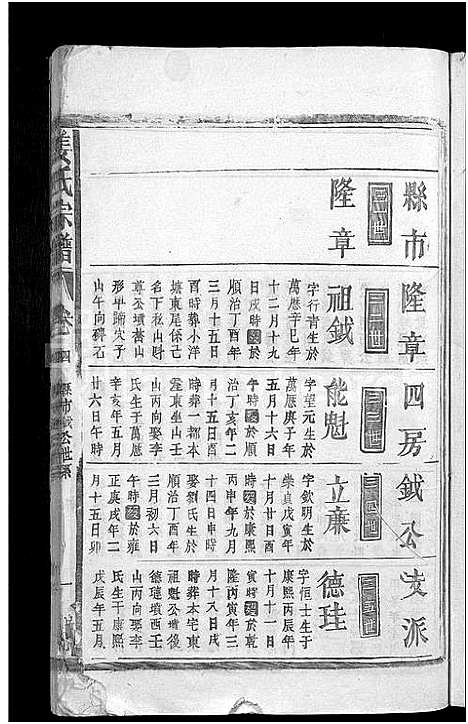 縣市隆章四房鉞公支派
隆章
祖鉞
字行青生於
萬曆辛巳年
十二月十九
日戌時歿於
順治丁酉年
三月十五日
酉時葬小洋
塘東尾保己
名下私山財
尊公墳嵩山
形平歸穴子
山午向碑石
能魁
字望元生於
萬歷庚子年
五月十六日
午時歿於順
治丁亥年二
月十五日酉
時葬一都本
壟東坐山壬
山丙向娶李
氏生于萬歷
辛亥年五月
廿六日午時
立廉
字欽明生於
崇貞戊寅年
十月廿日酉
時歿於康熙
丙申年九月
十四日申時
娶劉氏生於
順治丁酉年
三月初六日
午時歿於雍
正庚戌年二
月十五日卯
德珪
字恒士生于
康熙丙辰年
十月十一日
寅時歿於乾
隆丙寅年三
月十八日戌
時葬本宅東
祖魁公墳後
德璉墳西壬
山丙向娶李
氏生于康熙
戊辰年五月
姜氏宗譜
卷
四
縣市鉞公世系
一